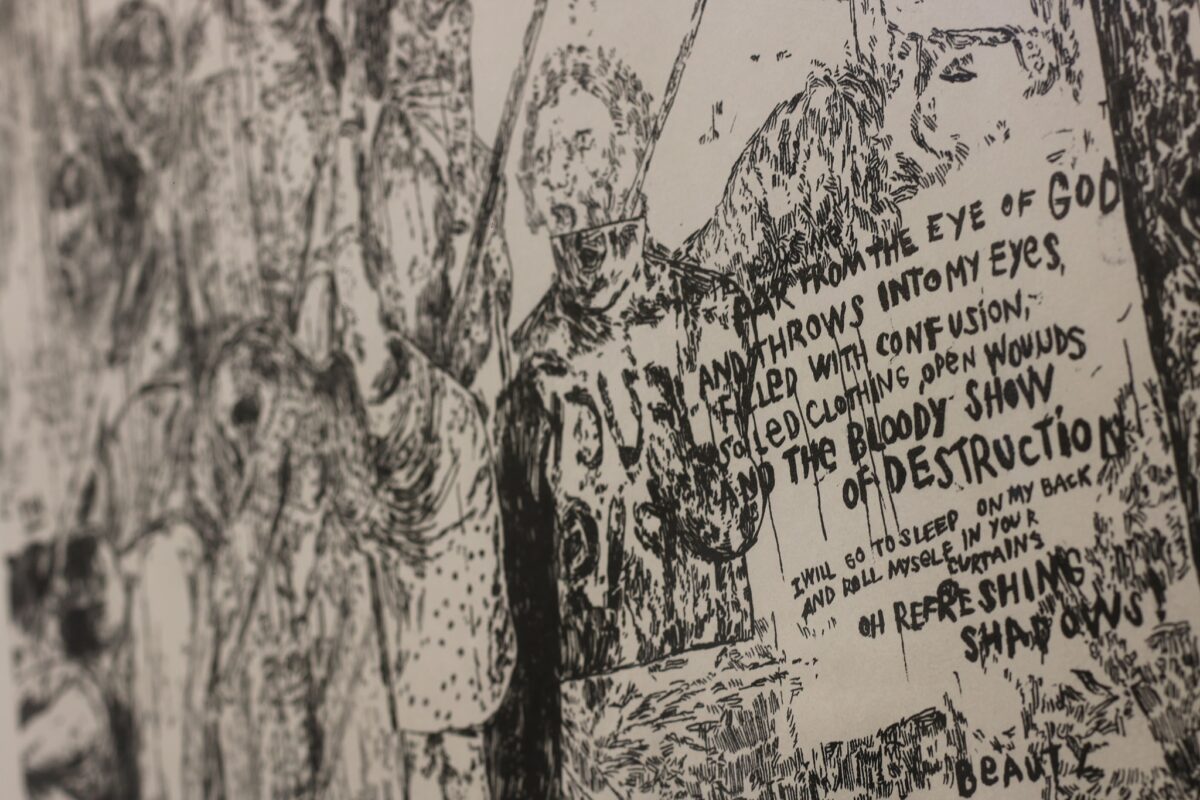 FAR FROM THE EYE OF GOD
AND THROWS INTO MY EYES,
FILLED WITH CONFUSION,
SOILED CLOTHING, OPEN WOUNDS
AND THE BLOODY SHOW
OF DESTRUCTION
I WILL GO TO SLEEP ON MY BACK
AND ROLL MYSELF IN YOUR
CURTAINS
OH REFRESHING
SHADOWS!
BEAUTY